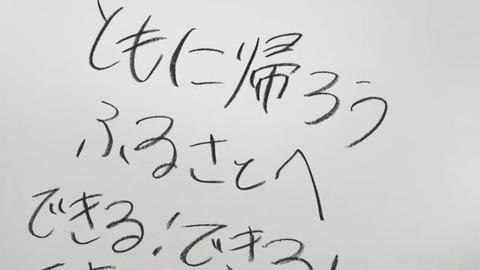 ともに帰ろう
ふるさとへ
できる!できる!